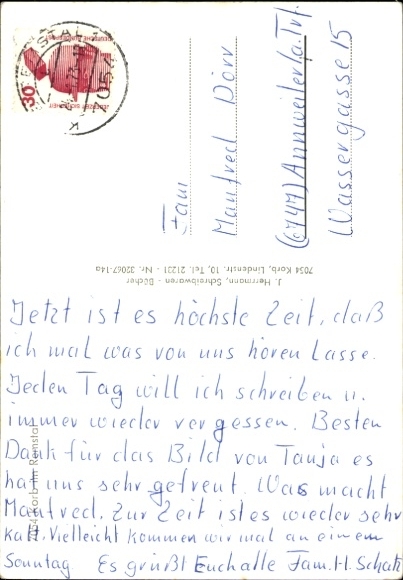 Fam
Manfred Dörr
(6747) Annweiler/a. Trf.
Wassergasse 15
J. Herrmann, Schreibwaren - Bücher
7054 Korb, Lindenstr. 10, Tel. 21231 - Nr. 32067-14a
7054
30
DEUTSCHE BUNDESPOST
JEDERZEIT SICHERHEIT
7054 Korb im Remstal
Jetzt ist es höchste Zeit, daß
ich mal was von uns hören lasse.
Jeden Tag will ich schreiben u.
immer wieder vergessen. Besten
Dank für das Bild von Tanja es
hat uns sehr gefreut. Was macht
Manfred. Zur Zeit ist es wieder sehr
kalt. Vielleicht kommen wir mal an einem
Sonntag. Es grüßt Euch alle Fam. H. Schatz